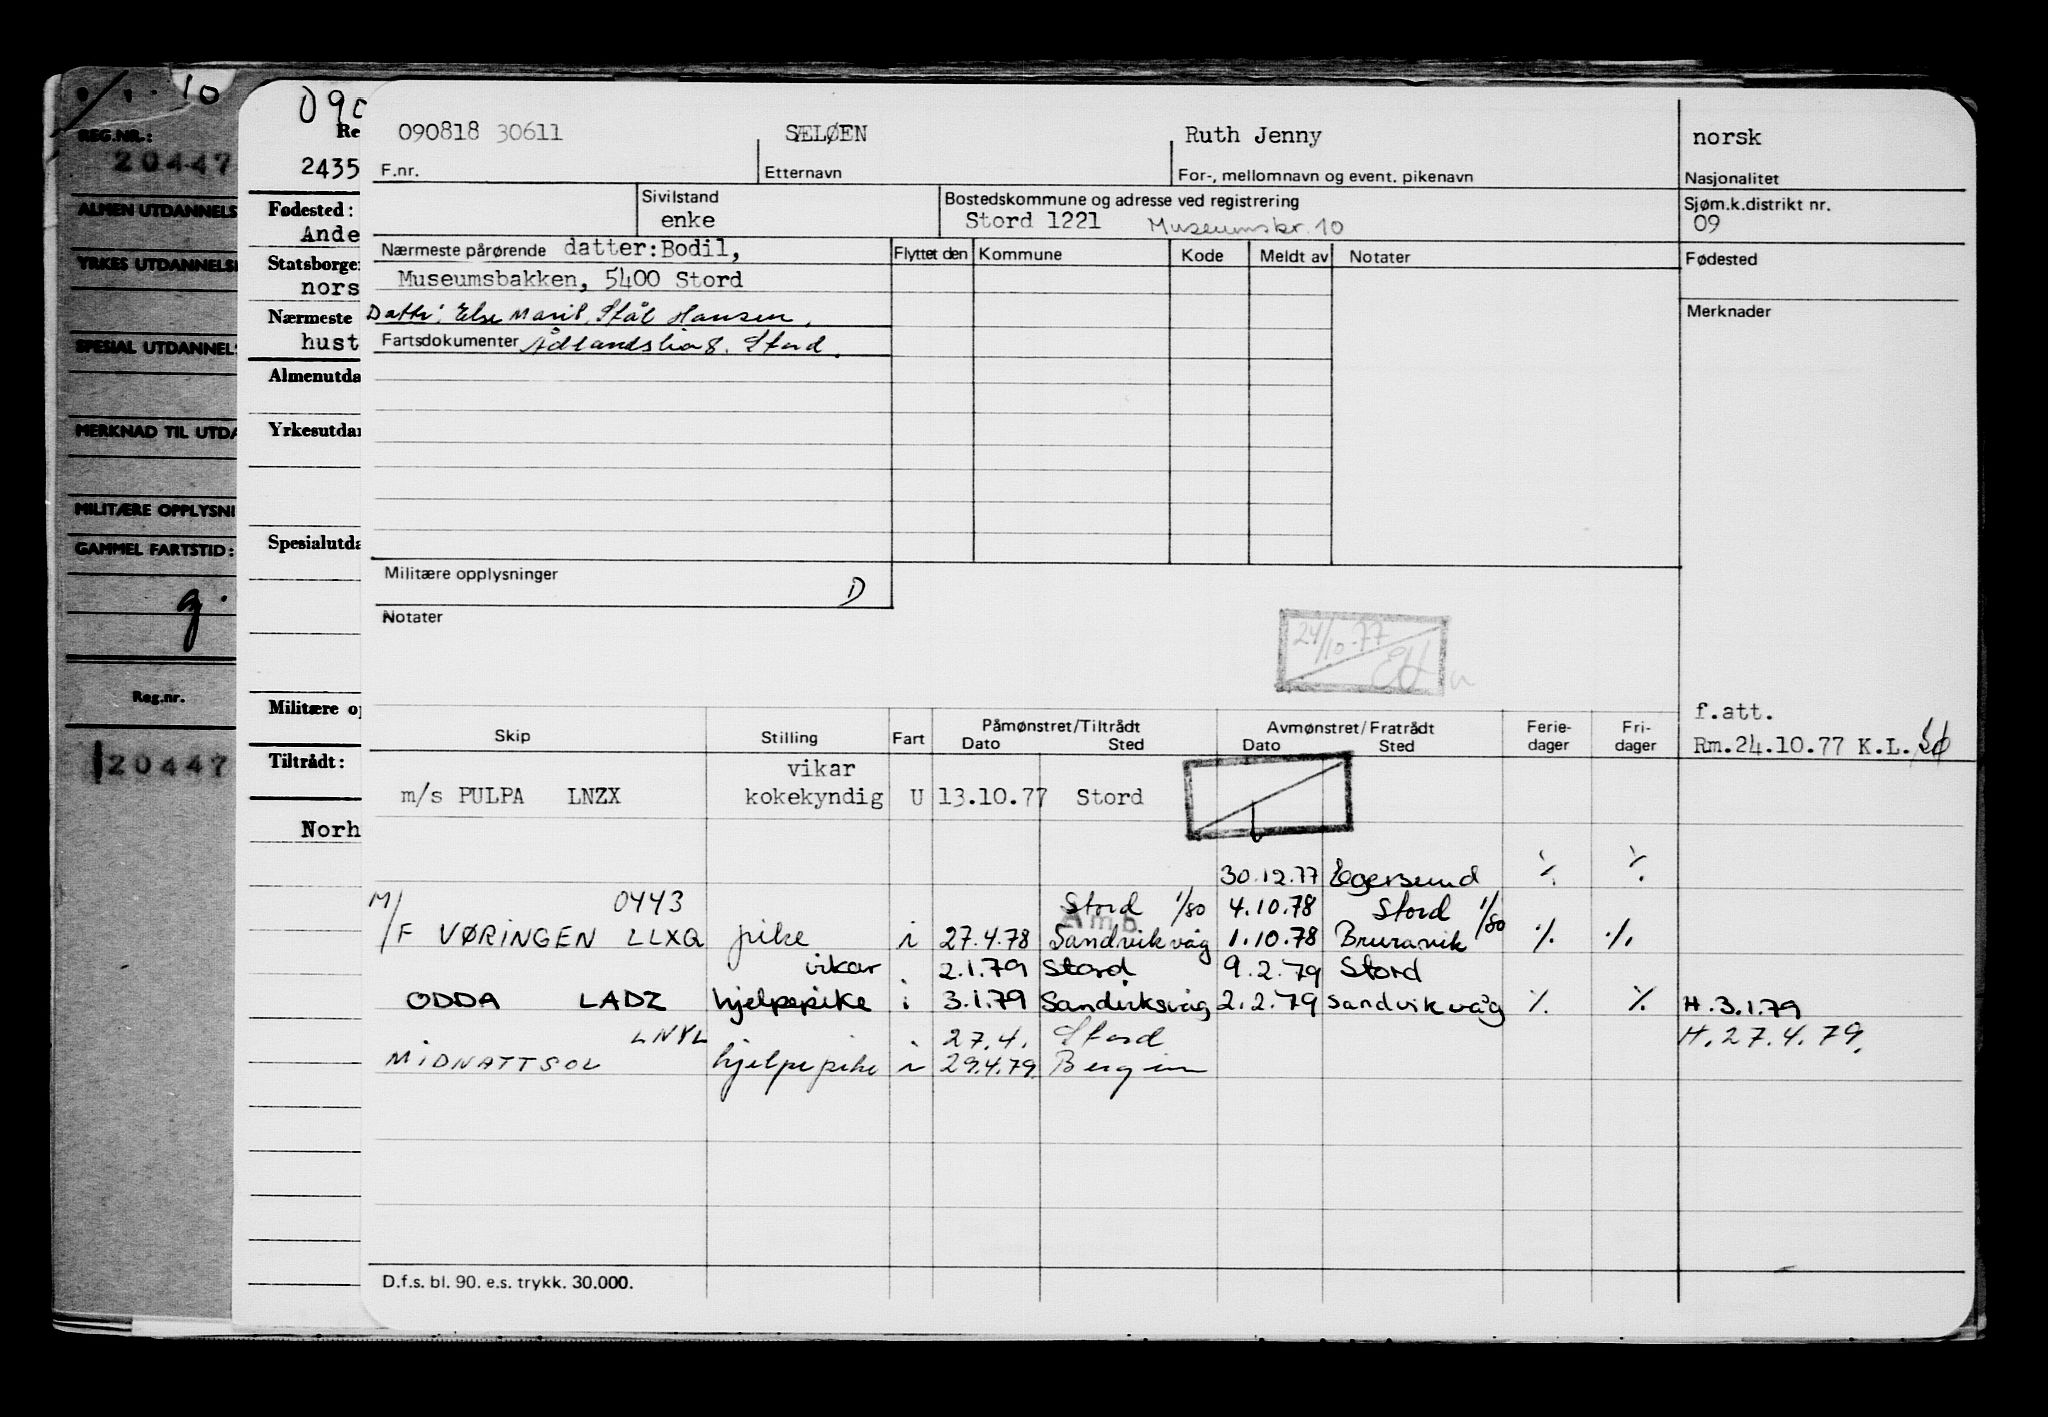 9/1.10
REG.NR.:
20447
ALMEN UTDANNELS
YRKES UTDANNELS
SPESIAL UTDANNELS
MERKNAD TIL UTDA
MILITÆRE OPPLYSNI
GAMMEL FARTSTID:
g.
Reg.nr.
120447
090
Re
2435
Fødested:
Ande
Statsborge
nors
Nærmeste
hust
Almenutda
Yrkesutda
Spesialutda
Militære o
Tiltrådt:
Norh
090818 30611 SÆLØEN Ruth Jenny norsk
F.nr. Etternavn For-, mellomnavn og event. pikenavn Nasjonalitet
Sivilstand Bostedskommune og adresse ved registrering Sjøm.k.distrikt nr.
enke Stord 1221 Museumsbr. 10 09
Nærmeste pårørende datter:Bodil, Flyttet den Kommune Kode Meldt av Notater Fødested
Museumsbakken, 5400 Stord
Datter: Else Marit Stål Hansen, Merknader
Fartsdokumenter Ådlandslia 8. Stord.
Militære opplysninger D
Notater
24/10-77 EH
f.att.
Skip Stilling Fart Påmønstret/Tiltrådt Avmønstret/Fratrådt Ferie-dager Fri-dager Rm.24.10.77 K.L.
Dato Sted Dato Sted
vikar
m/s PULPA LNZX kokekyndig U 13.10.77 Stord
30.12.77 Egersund % %
M/ 0443 Stord 1/80 4.10.78 Stord 1/80
Amb.
/F VØRINGEN LLXQ pike i 27.4.78 Sandvikvåg 1.10.78 Bruravik % %
vikar 2.1.79 Stord 9.2.79 Stord
ODDA LADZ hjelpepike i 3.1.79 Sandviksvåg 2.2.79 Sandvikvåg % % H.3.1.79
LNYL 27.4. Stord H.27.4.79.
MIDNATTSOL hjelpepike i 29.4.79 Bergen
D.f.s. bl. 90. e.s. trykk. 30.000.